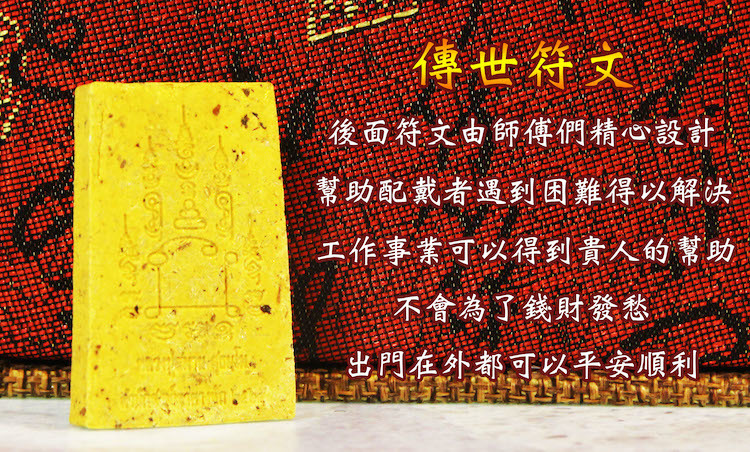 傳世符文
後面符文由師傅們精心設計
幫助配戴者遇到困難得以解決
工作事業可以得到貴人的幫助
不會為了錢財發愁
出門在外都可以平安順利